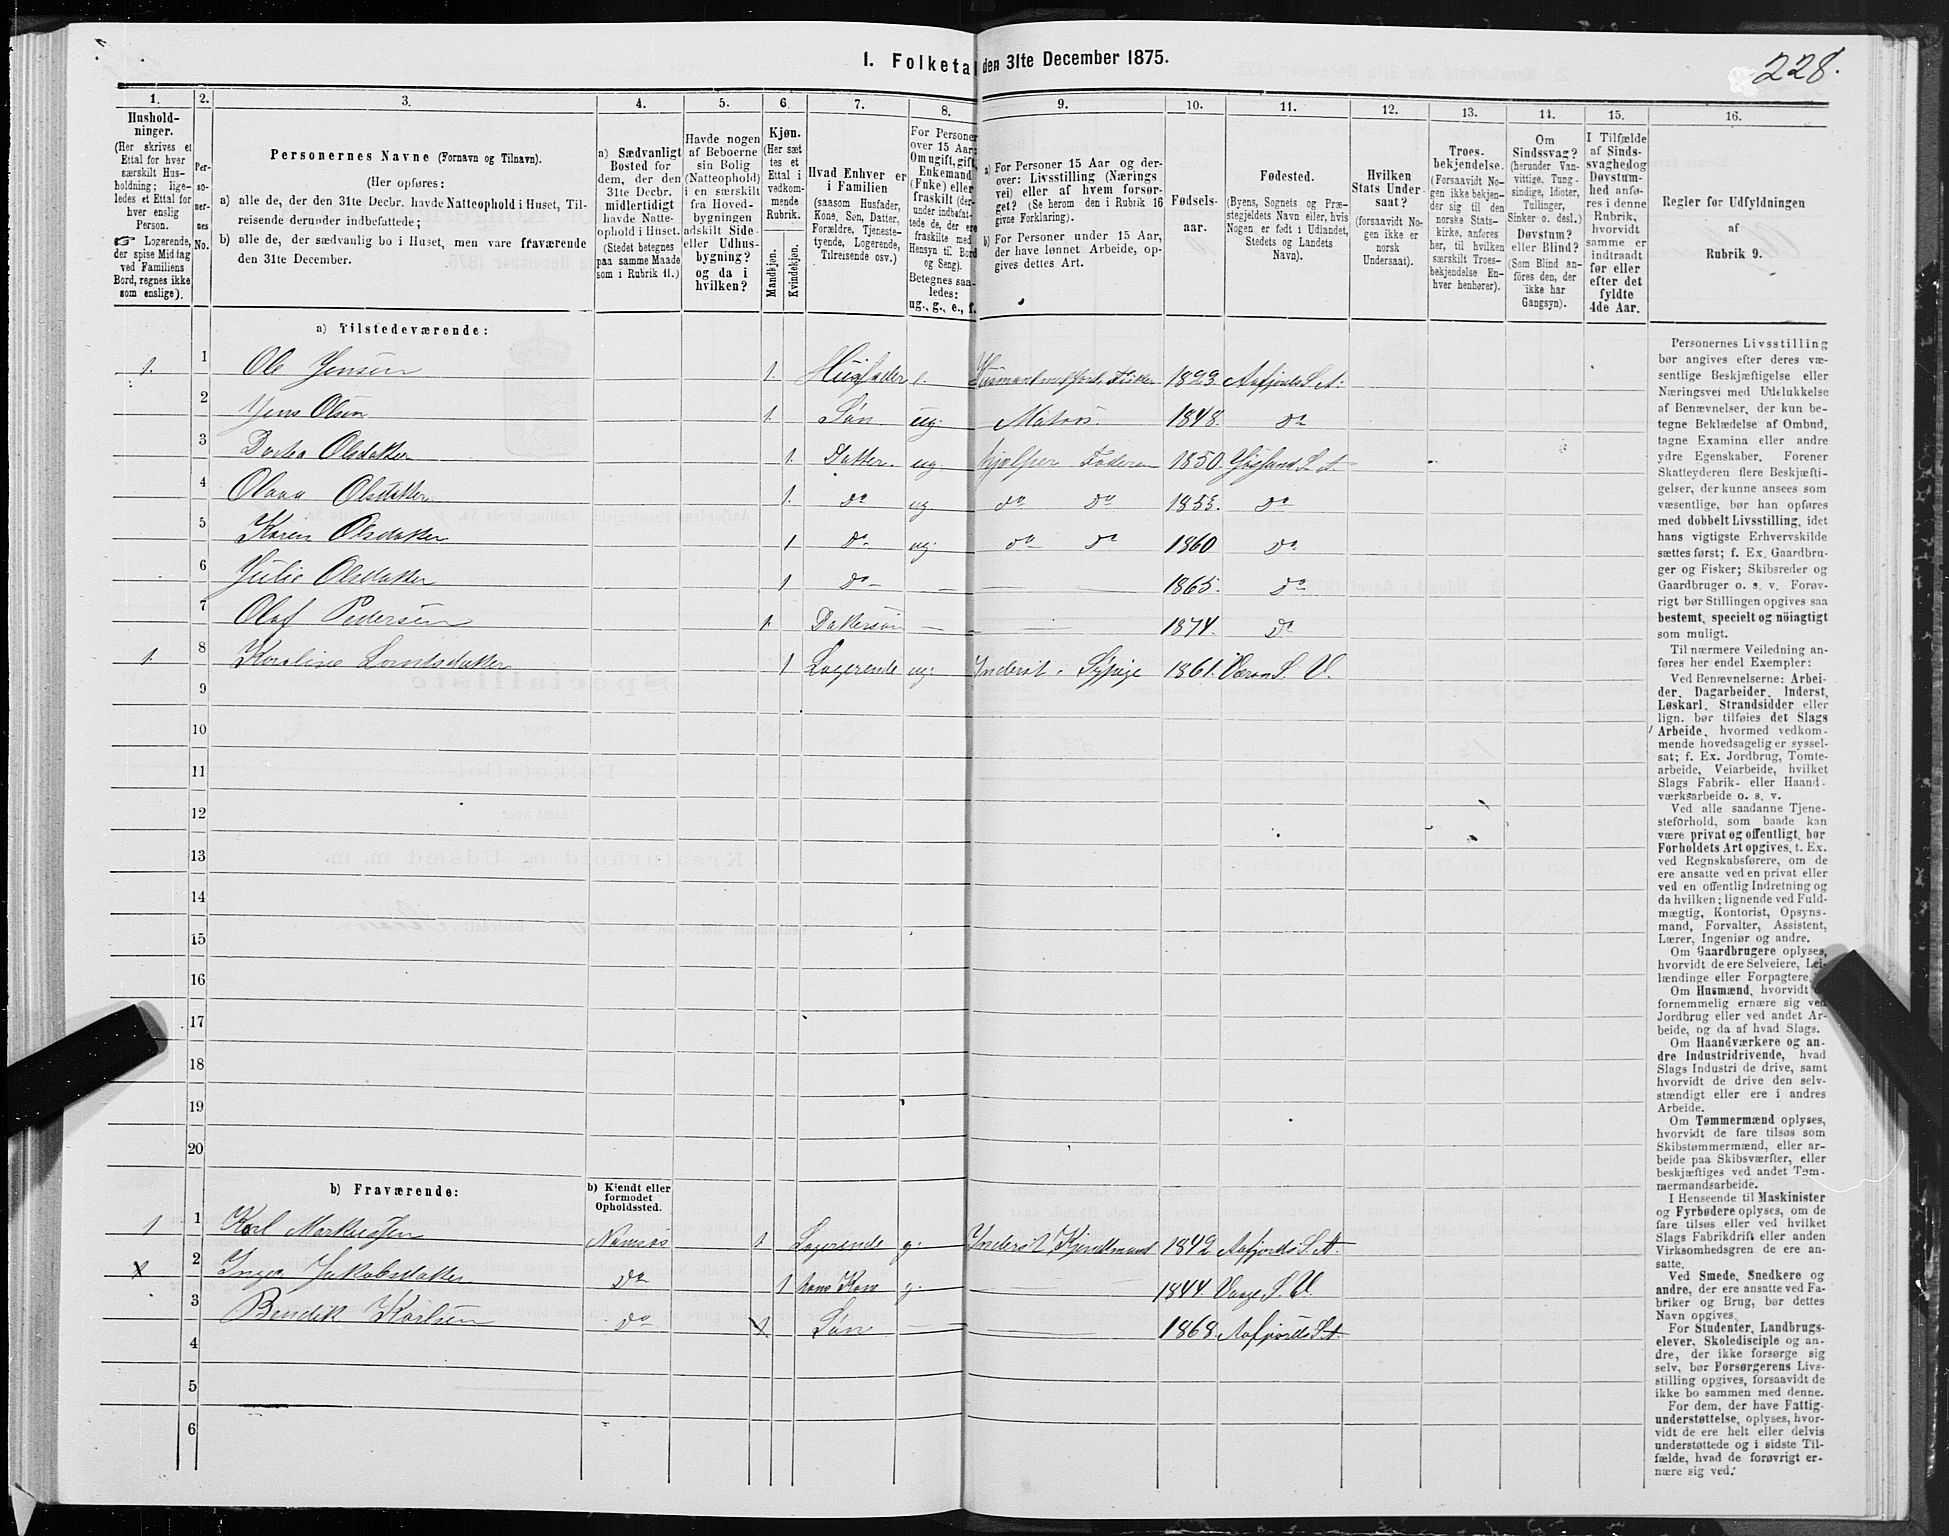 1. Folketal den 31te December 1875.
228.
1. 2. 3. 4. 5. 6. 7. 8. 9. 10. 11. 12. 13. 14. 15. 16.
Hushold-
ninger.
(Her skrives et
Ettal for hver
særskilt Hus-
holdning; lige-
ledes et Ettal for
hver enslig
Person.
☞ Logerende,
der spise Middag
ved Familiens
Bord, regnes ikke
som enslige).
Per-
so-
ner-
nes
No.
Personernes Navne (Fornavn og Tilnavn).
(Her opføres:
a) alle de, der den 31te Decbr. havde Natteophold i Huset, Til-
reisende derunder indbefattede;
b) alle de, der sædvanlig bo i Huset, men vare fraværende
den 31te December.
a) Sædvanligt
Bosted for
dem, der den
31te Decbr.
midlertidigt
havde Natte-
ophold i Huset.
(Stedet betegnes
paa samme Maade
som i Rubrik 11.)
Havde nogen
af Beboerne
sin Bolig
(Natteophold)
i en særskilt
fra Hoved-
bygningen
adskilt Side-
eller Udhus-
bygning?
og da i
hvilken?
Kjøn.
(Her sæt-
tes et
Ettal i
vedkom-
mende
Rubrik.
Mandkjøn.
Kvindekjøn.
Hvad Enhver er
i Familien
(saasom Husfader,
Kone, Søn, Datter,
Forældre, Tjeneste-
tyende, Logerende,
Tilreisende osv.)
For Personer
over 15 Aar:
Om ugift, gift,
Enkemand
(Enke) eller
fraskilt (der-
under indbefat-
tede de, der ere
fraskilte med
Hensyn til Bord
og Seng).
Betegnes saa-
ledes:
ug., g., e., f.
a) For Personer 15 Aar og der-
over: Livsstilling (Nærings-
vei) eller af hvem forsør-
get? (Se herom den i Rubrik 16
givne Forklaring).
b) For Personer under 15 Aar,
der have lønnet Arbeide, op-
gives dettes Art.
Fødsels-
aar.
Fødested.
(Byens, Sognets og Præ-
stegjeldets Navn eller, hvis
Nogen er født i Udlandet,
Stedets og Landets
Navn).
Hvilken
Stats Under-
saat?
(forsaavidt No-
gen ikke er
norsk
Undersaat).
Troes-
bekjendelse.
(Forsaavidt No-
gen ikke bekjen-
der sig til den
norske Stats-
kirke, anføres
her, til hvilken
særskilt Troes-
bekjendelse En-
hver henhører).
Om
Sindssvag?
(herunder Van-
vittige, Tung-
sindige, Idioter,
Tullinger,
Sinker o. desl.)
Døvstum?
eller Blind?
(Som Blind an-
føres den, der
ikke har
Gangsyn).
I Tilfælde
af Sinds-
svaghed og
Døvstum-
hed anfø-
res i denne
Rubrik,
hvorvidt
samme er
indtraadt
før eller
efter det
fyldte
4de Aar.
Regler for Udfyldningen
af
Rubrik 9.
a) Tilstedeværende:
1. 1 Ole Jensen 1. Husfader e. Husmand m/ Jord, Fisker 1823. Aafjords S. A.
2 Jens Olsen 1. Søn ug. Matros. 1848. do
3 Dortea Olsdatter 1. Datter. ug. hjælper Faderen 1850. Jøssund S. A
4 Olava Olsdatter 1. do ug do do 1855. do
5 Karen Olsdatter 1 do ug. do do 1860 do
6 Julie Olsdatter 1 do — — 1865. do
7 Olaf Pedersen 1. Dattersøn — — 1874. do
1. 8 Karoline Lorntsdatter 1 Logerende ug. Inderst, Sypige 1861. Værans S. V.
9
10
11
12
13
14
15
16
17
18
19
20
b) Fraværende:
b) Kjendt eller
formodet
Opholdssted.
1 1 Karl Markussen Namsos 1. Logerende g. Inderst Kjendtmand 1842 Aafjords S. A.
2 Inger Jakobsdatter do 1 hans Kone g. 1844. S. V.
3 Bendik Karlsen do Søn — 1868. Aafjords S. A.
4
5
6
Personernes Livsstilling
bør angives efter deres væ-
sentlige Beskjæftigelse eller
Næringsvei med Udelukkelse
af Benævnelser, der kun be-
tegne Beklædelse af Ombud,
tagne Examina eller andre
ydre Egenskaber. Forener
Skatteyderen flere Beskjæfti-
gelser, der kunne ansees som
væsentlige, bør han opføres
med dobbelt Livsstilling, idet
hans vigtigste Erhvervskilde
sættes først; f. Ex. Gaardbru-
ger og Fisker; Skibsreder og
Gaardbruger o. s. v. Forøv-
rigt bør Stillingen opgives saa
bestemt, specielt og nöiagtigt
som muligt.
Til nærmere Veiledning an-
føres her endel Exempler:
Ved Benævnelserne: Arbei-
der, Dagarbeider, Inderst,
Løskarl, Strandsidder eller
lign. bør tilføies det Slags
Arbeide, hvormed vedkom-
mende hovedsagelig er syssel-
sat; f. Ex. Jordbrug, Tomte-
arbeide, Veiarbeide, hvilket
Slags Fabrik- eller Haand-
værksarbeide o. s. v.
Ved alle saadanne Tjene-
steforhold, som baade kan
være privat og offentligt, bør
Forholdets Art opgives, t. Ex.
ved Regnskabsførere, om de
ere ansatte ved en privat eller
ved en offentlig Indretning og
da hvilken; lignende ved Fuld-
mægtig, Kontorist, Opsyns-
mand, Forvalter, Assistent,
Lærer, Ingeniør og andre.
Om Gaardbrugere oplyses,
hvorvidt de ere Selveiere, Lei-
lændinge eller Forpagtere.
Om Husmænd, hvorvidt de
fornemmelig ernære sig ved
Jordbrug eller ved andet Ar-
beide, og da af hvad Slags.
Om Haandværkere og an-
dre Industridrivende, hvad
Slags Industri de drive, samt
hvorvidt de drive den selv-
stændigt eller ere i andres
Arbeide.
Om Tømmermænd oplyses,
hvorvidt de fare tilsøs som
Skibstømmermænd, eller ar-
beide paa Skibsværfter, eller
beskjæftiges ved andet Tøm-
mermandsarbeide.
I Henseende til Maskinister
og Fyrbødere oplyses, om de
fare tilsøs eller ved hvilket
Slags Fabrikdrift eller anden
Virksomhedsgren de ere an-
satte.
Ved Smede, Snedkere og
andre, der ere ansatte ved Fa-
briker og Brug, bør dettes
Navn opgives.
For Studenter, Landbrugs-
elever, Skoledisciple og an-
dre, der ikke forsørge sig
selv, bør Forsørgerens Livs-
stilling opgives, forsaavidt de
ikke bo sammen med denne.
For dem, der have Fattig-
understøttelse, oplyses, hvor-
vidt de ere helt eller delvis
understøttede og i sidste Til-
fælde, hvad de forøvrigt er-
nære sig ved.